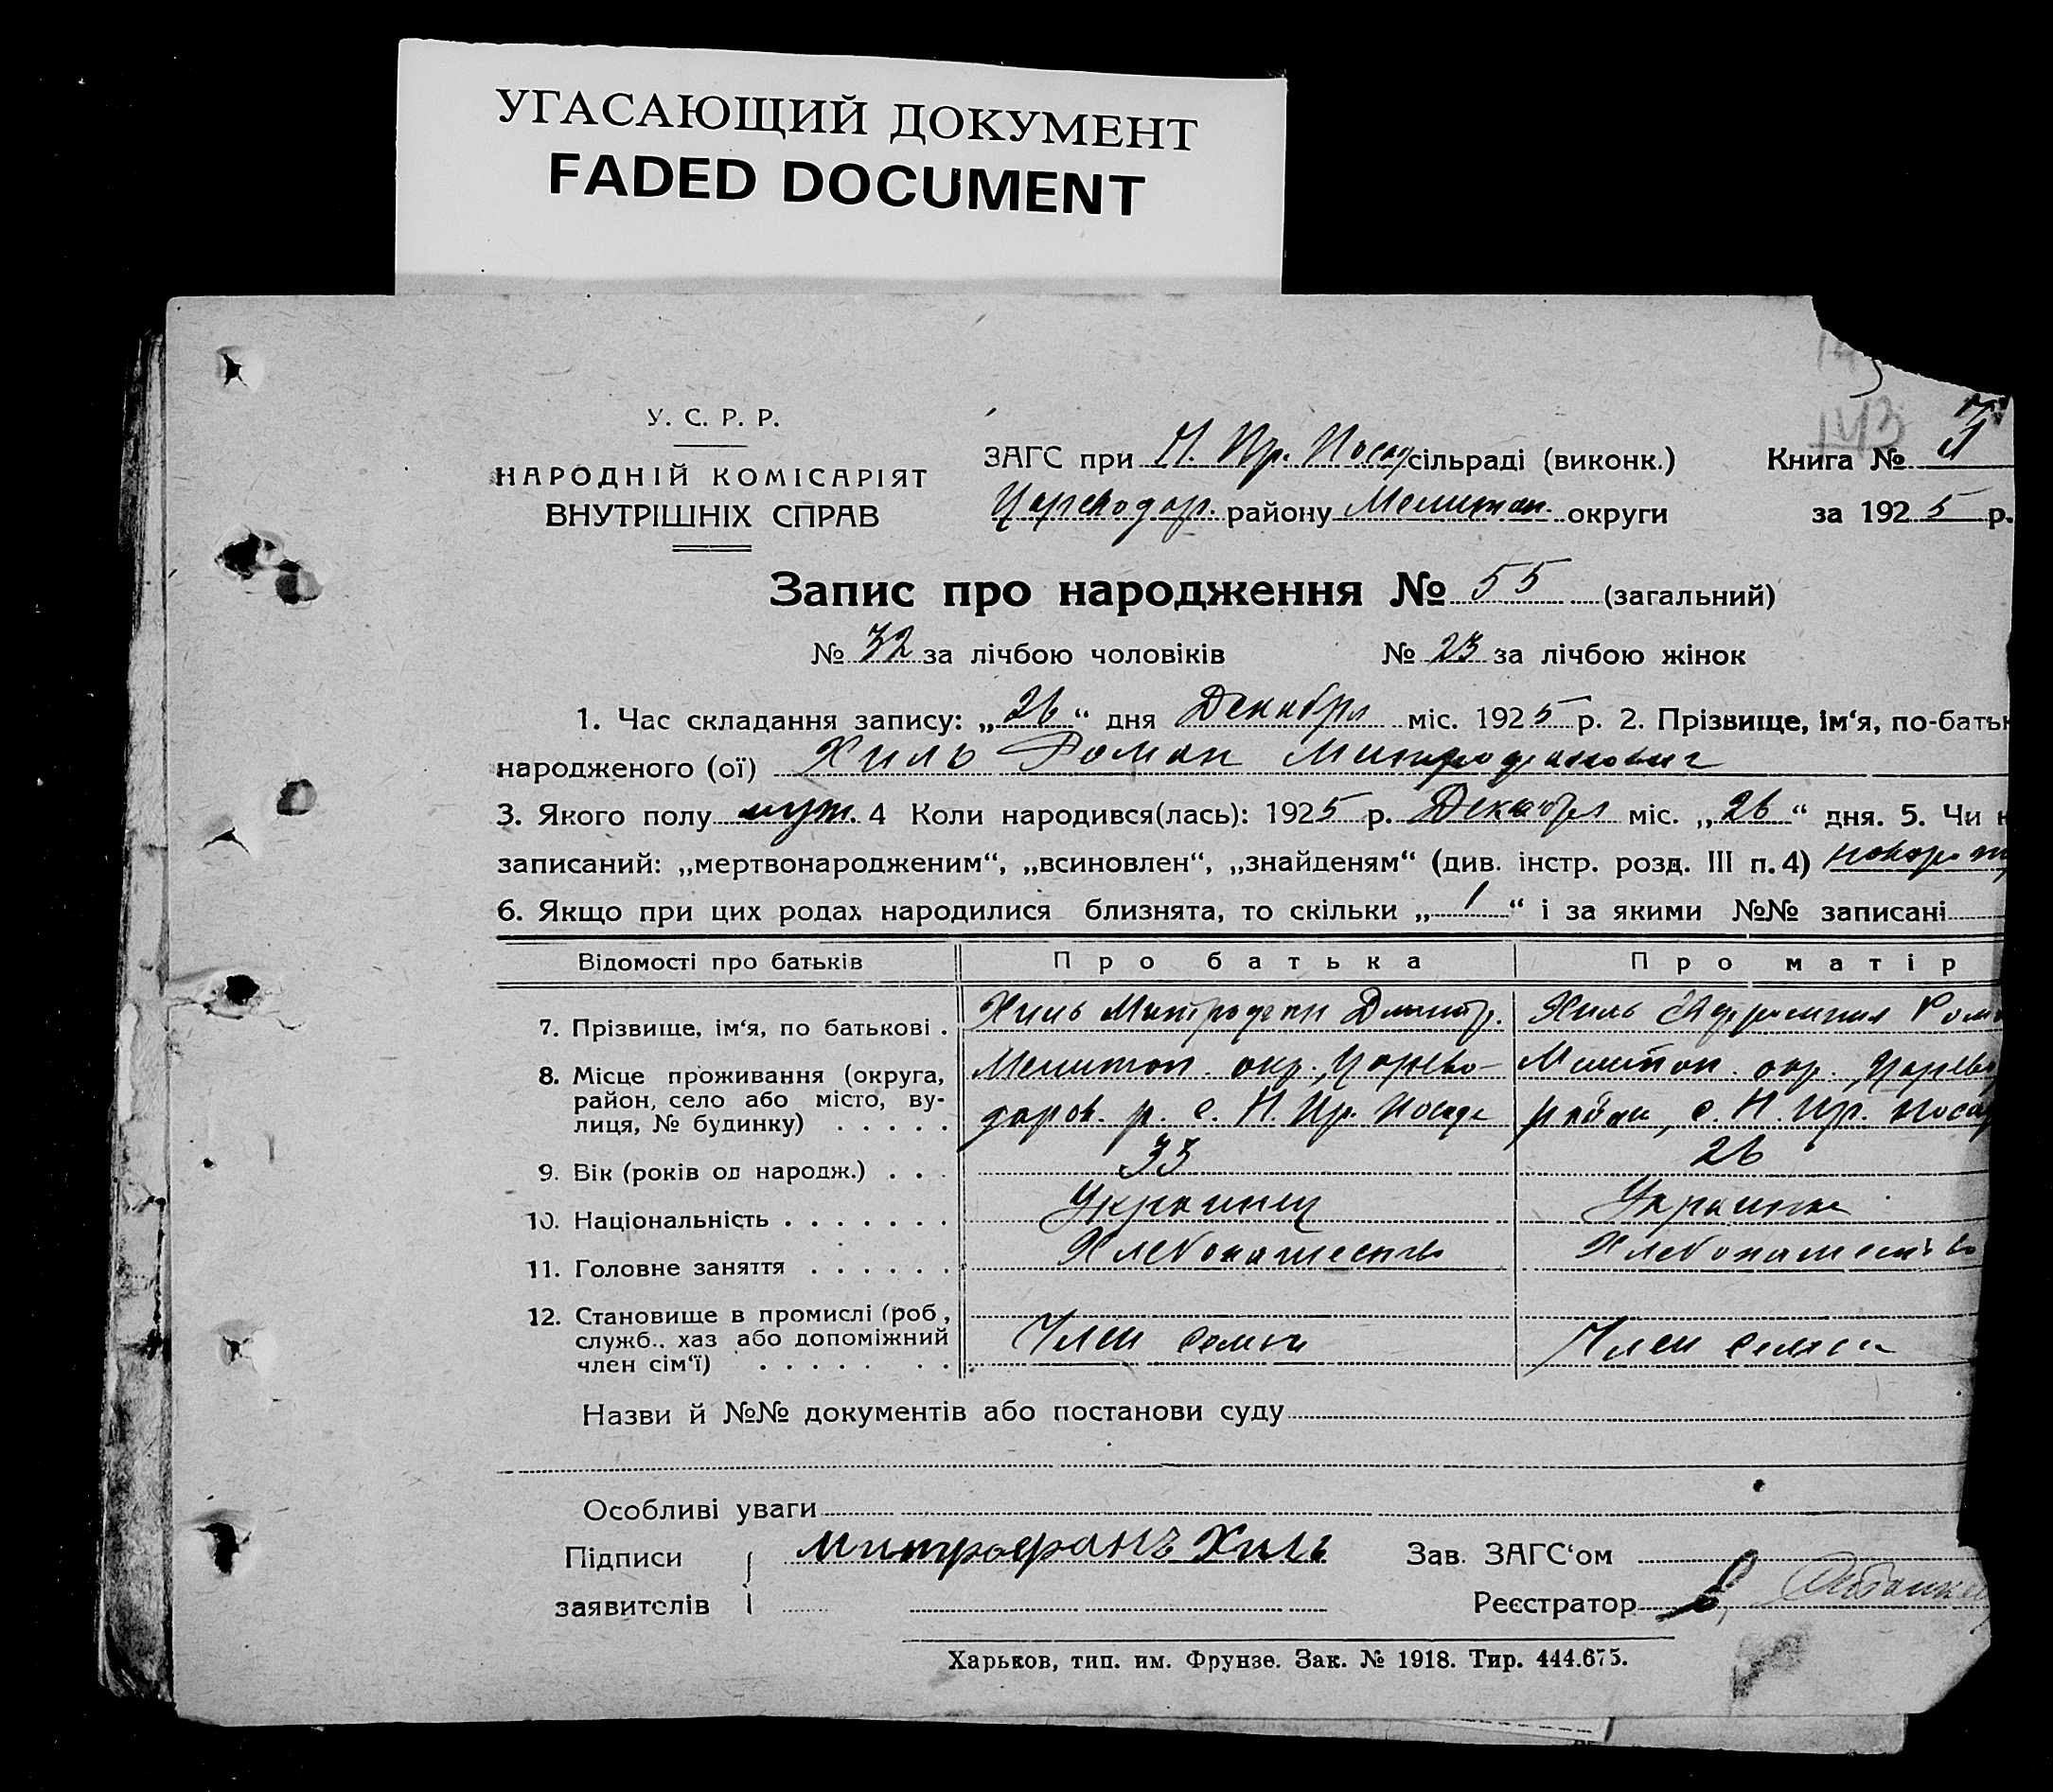 УГАСАЮЩИЙ ДОКУМЕНТ
FADED DOCUMENT
143
У. С. Р. Р.
НАРОДНІЙ КОМІСАРІЯТ
ВНУТРІШНІХ СПРАВ
ЗАГС при Н. Пр. Посад сільраді (виконк.)
Книга №
Цареводар. району Мелитоп. округи
за 1925 р.
Запис про народження № 55 (загальний)
№ 32 за лічбою чоловіків № 23 за лічбою жінок
1. Час складання запису: „26“ дня Декабря міс. 1925 р. 2. Прізвище, ім‘я, по-батьк
народженого (ої) Хиль Роман Митрофанович
3. Якого полу муж. 4 Коли народився(лась): 1925 р. Декабря міс. „26“ дня. 5. Чи н
записаний: „мертвонародженим“, „всиновлен“, „знайденям“ (див. інстр. розд. III п. 4)
6. Якщо при цих родах народилися близнята, то скільки „1“ і за якими №№ записані
Відомості про батьків Про батька Про матір
7. Прізвище, ім‘я, по батькові . Хиль Митрофан Дмитр. Хиль Ром
8. Місце проживання (округа, район, село або місто, ву-лиця, № будинку) . . . . .
Мелитоп. окр., Царево-
даров. р. с. Н. Пр. Посад
Мелитоп. окр., Царево
район, с. Н. Пр. Посад
9. Вік (років од народж.) . . . 33 26
10. Національність . . . . . . . Украинец Украинка
11. Головне заняття . . . . . . Хлебопашество Хлебопашество
12. Становище в промислі (роб, служб.. хаз або допоміжний член сім‘ї) . . . . . . . Член семьи Член семьи
Назви й №№ документів або постанови суду
Особливі уваги
Підписи Митрофанъ Хиль Зав. ЗАГС‘ом
заявителів Реєстратор
Харьков, тип. им. Фрунзе. Зак. № 1918. Тир. 444.675.